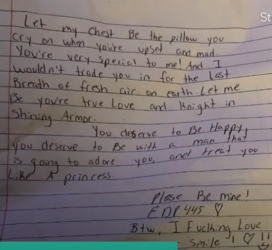 St
Let my Chest Be the pillow you
cry on when you're upset and mad
You're very special to me! And I
wouldn't trade you in for the last
Breath of fresh air on earth Let me
Be you're true love and Knight in
Shining Armor.
You deserve to Be Happy,
you deserve to Be with a man that
is going to adore you, and treat you
Like A princess.
Please Be mine!
EDP445 ♡
Btw, I Fuching Love
Smile! ♡!!